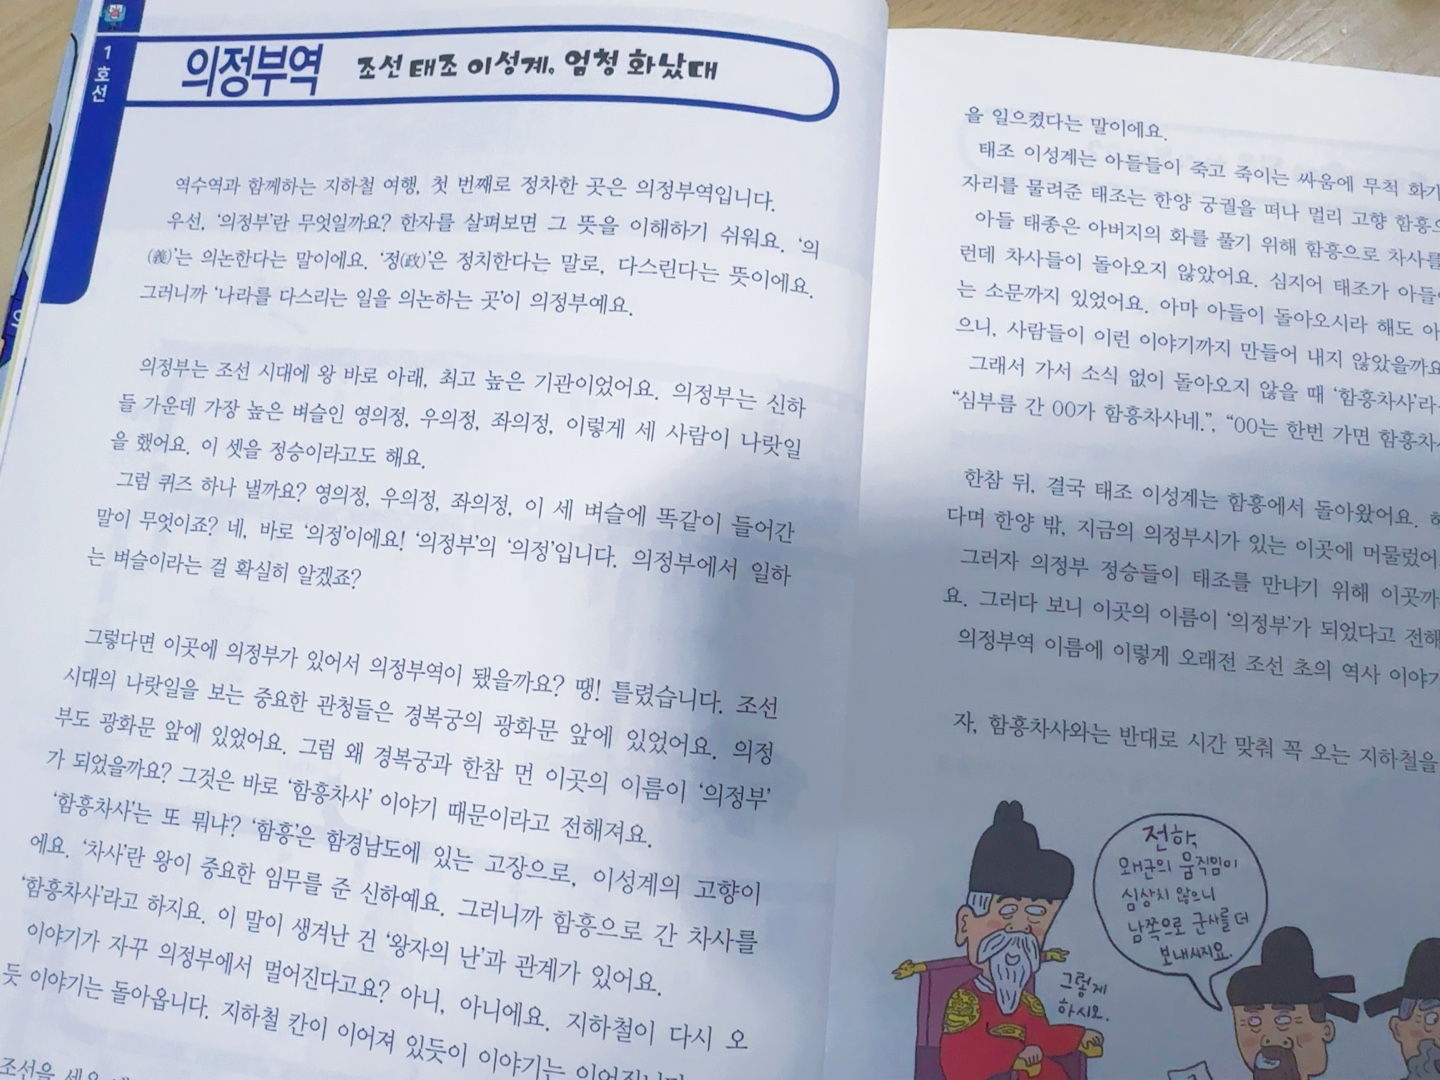 1호선
의정부역 조선 태조 이성계, 엄청 화났대
역수역과 함께하는 지하철 여행, 첫 번째로 정차한 곳은 의정부역입니다.
우선, ‘의정부’란 무엇일까요? 한자를 살펴보면 그 뜻을 이해하기 쉬워요. ‘의
(義)’는 의논한다는 말이에요. ‘정(政)’은 정치한다는 말로, 다스린다는 뜻이에요.
그러니까 ‘나라를 다스리는 일을 의논하는 곳’이 의정부예요.
의정부는 조선 시대에 왕 바로 아래, 최고 높은 기관이었어요. 의정부는 신하
들 가운데 가장 높은 벼슬인 영의정, 우의정, 좌의정, 이렇게 세 사람이 나랏일
을 했어요. 이 셋을 정승이라고도 해요.
그럼 퀴즈 하나 낼까요? 영의정, 우의정, 좌의정, 이 세 벼슬에 똑같이 들어간
말이 무엇이죠? 네, 바로 ‘의정’이에요! ‘의정부’의 ‘의정’입니다. 의정부에서 일하
는 벼슬이라는 걸 확실히 알겠죠?
그렇다면 이곳에 의정부가 있어서 의정부역이 됐을까요? 땡! 틀렸습니다. 조선
시대의 나랏일을 보는 중요한 관청들은 경복궁의 광화문 앞에 있었어요. 의정
부도 광화문 앞에 있었어요. 그럼 왜 경복궁과 한참 먼 이곳의 이름이 ‘의정부’
가 되었을까요? 그것은 바로 ‘함흥차사’ 이야기 때문이라고 전해져요.
‘함흥차사’는 또 뭐냐? ‘함흥’은 함경남도에 있는 고장으로, 이성계의 고향이
에요. ‘차사’란 왕이 중요한 임무를 준 신하예요. 그러니까 함흥으로 간 차사를
‘함흥차사’라고 하지요. 이 말이 생겨난 건 ‘왕자의 난’과 관계가 있어요.
이야기가 자꾸 의정부에서 멀어진다고요? 아니, 아니에요. 지하철이 다시 오
듯 이야기는 돌아옵니다. 지하철 칸이 이어져 있듯이 이야기는 이어집니다.
조선을 세운
을 일으켰다는 말이에요.
태조 이성계는 아들들이 죽고 죽이는 싸움에 무척 화가
자리를 물려준 태조는 한양 궁궐을 떠나 멀리 고향 함흥으
아들 태종은 아버지의 화를 풀기 위해 함흥으로 차사를
런데 차사들이 돌아오지 않았어요. 심지어 태조가 아들이
는 소문까지 있었어요. 아마 아들이 돌아오시라 해도 아
으니, 사람들이 이런 이야기까지 만들어 내지 않았을까요
그래서 가서 소식 없이 돌아오지 않을 때 ‘함흥차사’라
“심부름 간 00가 함흥차사네.”, “00는 한번 가면 함흥차사
한참 뒤, 결국 태조 이성계는 함흥에서 돌아왔어요.
다며 한양 밖, 지금의 의정부시가 있는 이곳에 머물렀어
그러자 의정부 정승들이 태조를 만나기 위해 이곳까
요. 그러다 보니 이곳의 이름이 ‘의정부’가 되었다고 전해
의정부역 이름에 이렇게 오래전 조선 초의 역사 이야기
자, 함흥차사와는 반대로 시간 맞춰 꼭 오는 지하철을
전하,
왜군의 움직임이
심상치 않으니
남쪽으로 군사를 더
보내시지요.
그렇게
하시오.